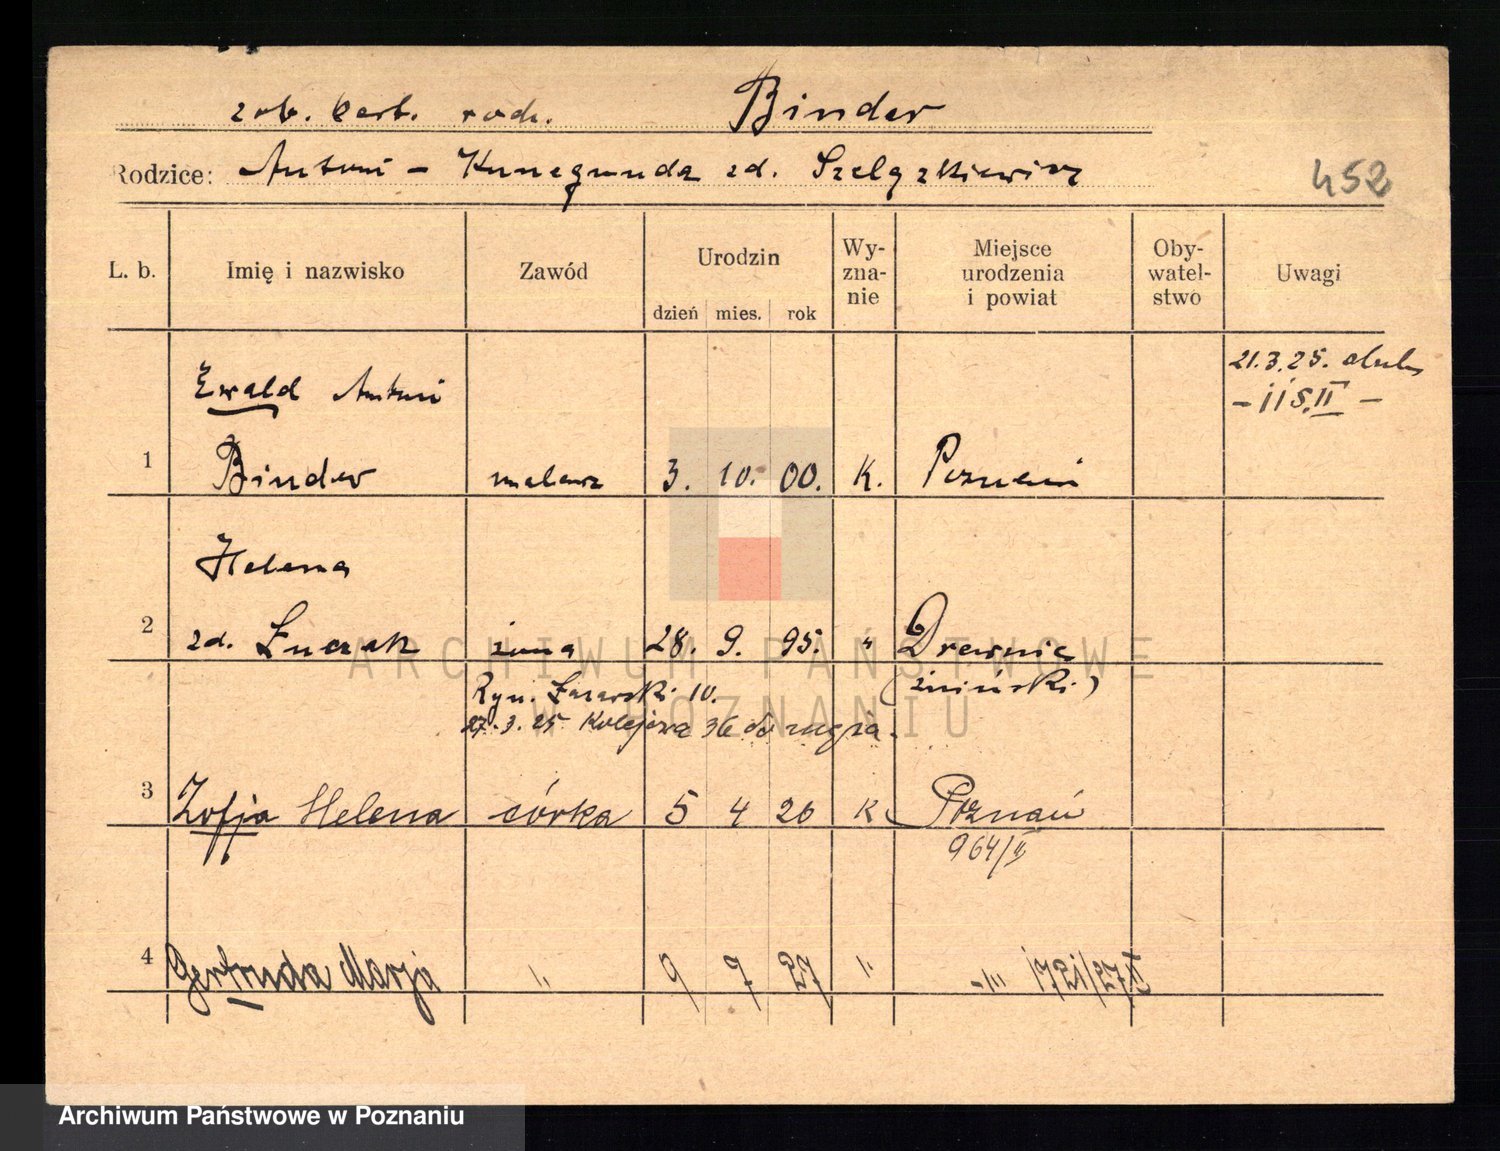 zob. kart. rodz. Binder
Rodzice: Antoni - Kunegunda zd. Szelążkiewicz
452
L. b. Imię i nazwisko Zawód Urodzin Wy-zna-nie Miejsce urodzenia i powiat Oby-watel-stwo Uwagi
dzień mies. rok
21.3.25.
Ewald Antoni
1 Binder malarz 3. 10. 00. K. Poznań
Helena
2 zd. Łuczak żona 28. 9. 95. " Drewnie
(żniński)
Ryn. Łazarski 10.
27.3.25 Kolejowa 36
3 Zofja Helena córka 5 4 26 K Poznań
964/II
4 Gertruda Marja " 9 7 27 " -"- 1721/27 II
ARCHIWUM PAŃSTWOWE
W POZNANIU
Archiwum Państwowe w Poznaniu